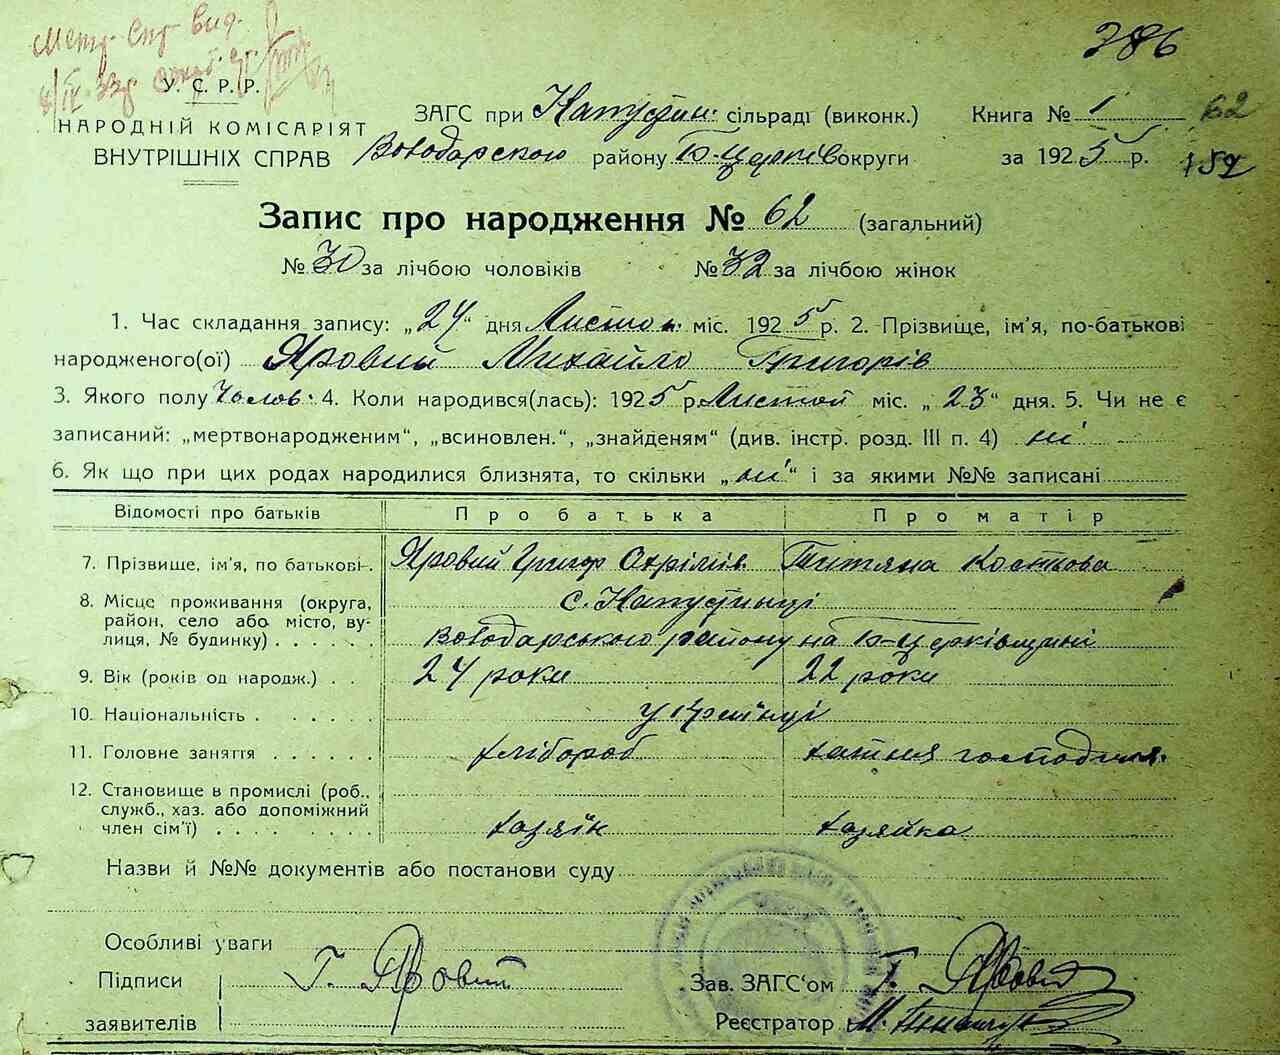 386
У. С. Р. Р.
НАРОДНІЙ КОМІСАРІЯТ
ВНУТРІШНІХ СПРАВ
ЗАГС при Капустин. сільраді (виконк.) Книга № 1 62
Володарсною району Б-Церків округи за 1925 р. 152
Запис про народження № 62 (загальний)
№ 30 за лічбою чоловіків № 32 за лічбою жінок
1. Час складання запису: „24“ дня Листоп. міс. 1925 р. 2. Прізвище, ім'я, по-батькові
народженого(ої) Яровий Михайло Григорів
3. Якого полу Чолов. 4. Коли народився(лась): 1925 р. Листоп міс. „23“ дня. 5. Чи не є
записаний: „мертвонародженим“, „всиновлен.“, „знайденям“ (див. інстр. розд. III п. 4) ні
6. Як що при цих родах народилися близнята, то скільки „ні“ і за якими №№ записані
Відомості про батьків Про батька Про матір
7. Прізвище, ім'я, по батькові Яровий Григор Охрімів Титяна Костьова
8. Місце проживання (округа, район, село або місто, вулиця, № будинку) с. Капустинці
Володарського району на Б-Церківщині
9. Вік (років од народж.) 24 роки 22 роки
10. Національність Україінці
11. Головне заняття хлібороб хатня господиня.
12. Становище в промислі (роб., служб., хаз. або допоміжний член сім'ї) хазяїн хазяйка
Назви й №№ документів або постанови суду
Особливі уваги
Підписи Г. Яровий Зав. ЗАГС'ом Г. Яровий
заявителів Реєстратор М.